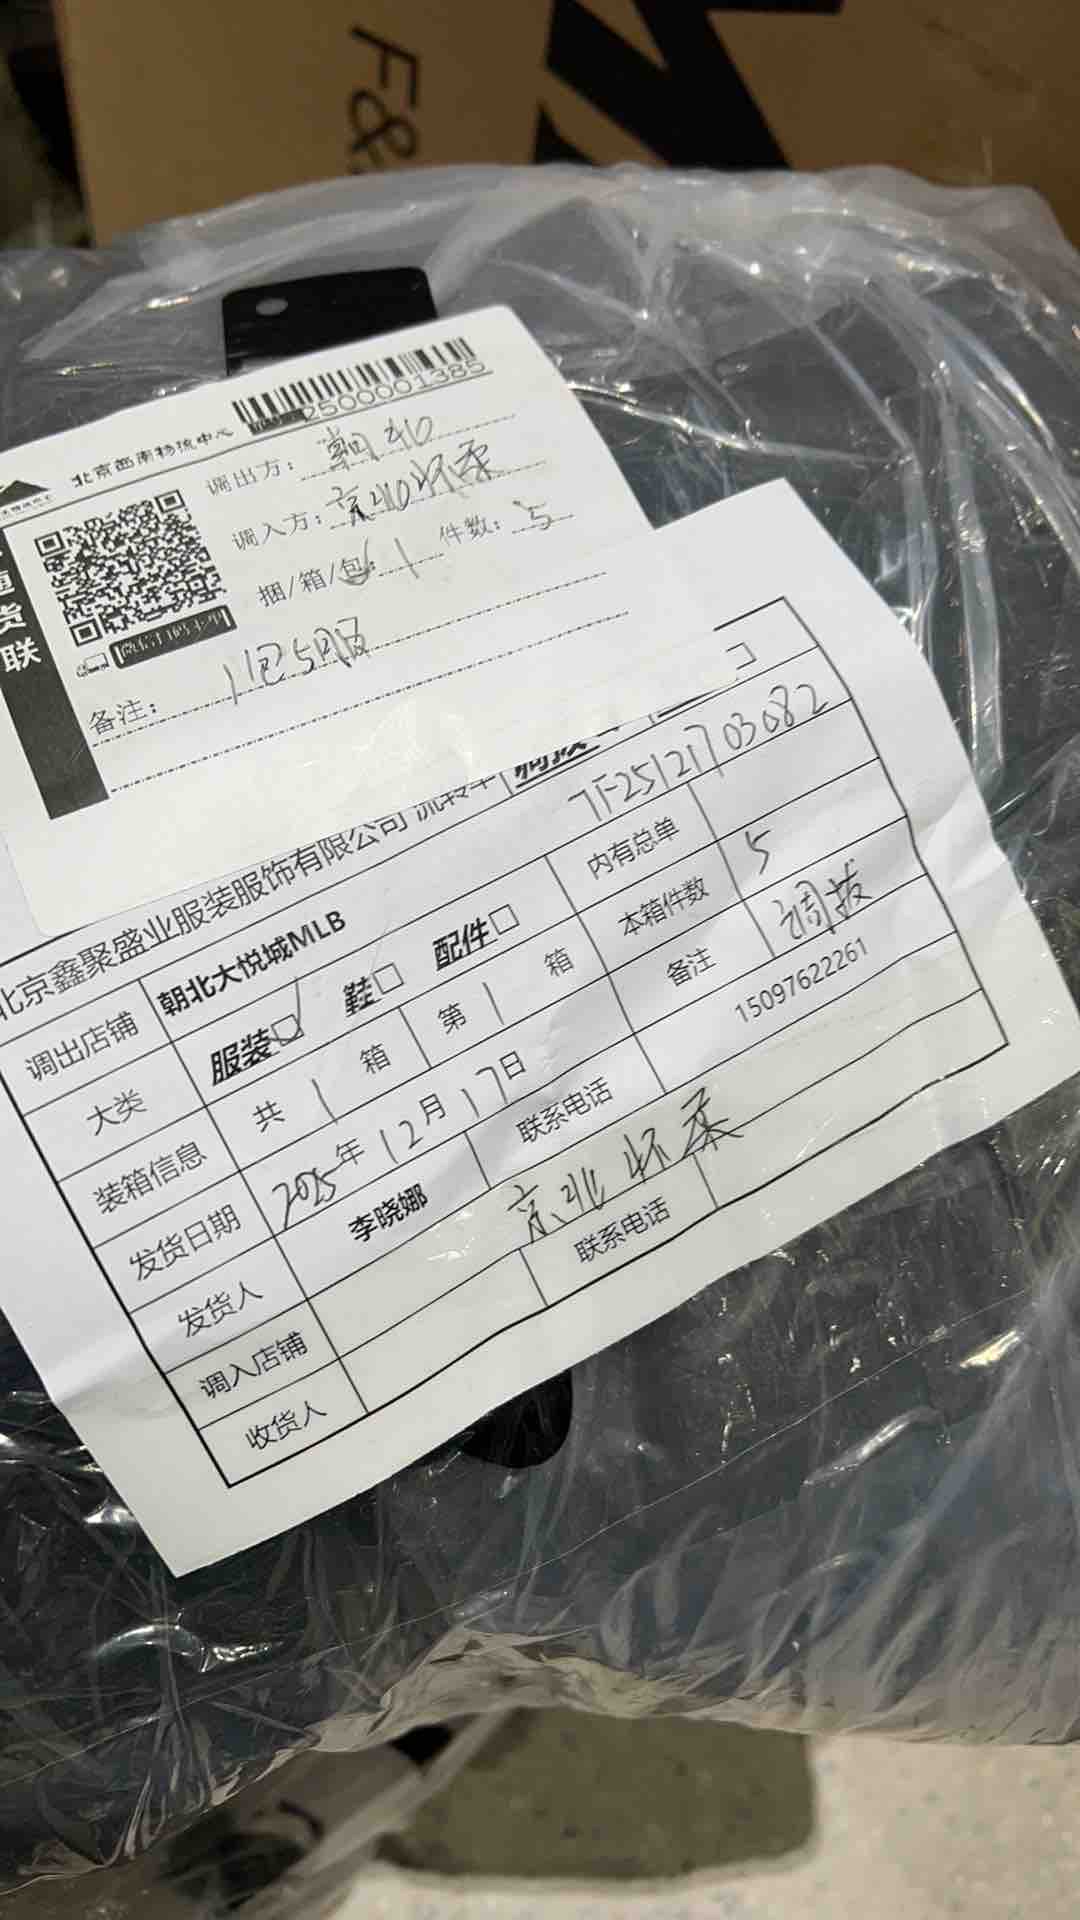 F&
2500001385
北京西南物流中心
调出方：朝北
调入方：京北怀柔
捆/箱/包： 1 件数：5
备注：1包5服
货
联
北京鑫聚盛业服装服饰有限公司 流转单
调出店铺 朝北大悦城MLB 内有总单 TF25121703082
大类 服装☑ 鞋□ 配件□ 本箱件数 5
装箱信息 共 1 箱 第 1 箱 备注 调拨
发货日期 2025年12月17日
发货人 李晓娜 联系电话 15097622261
调入店铺 京北怀柔
收货人 联系电话